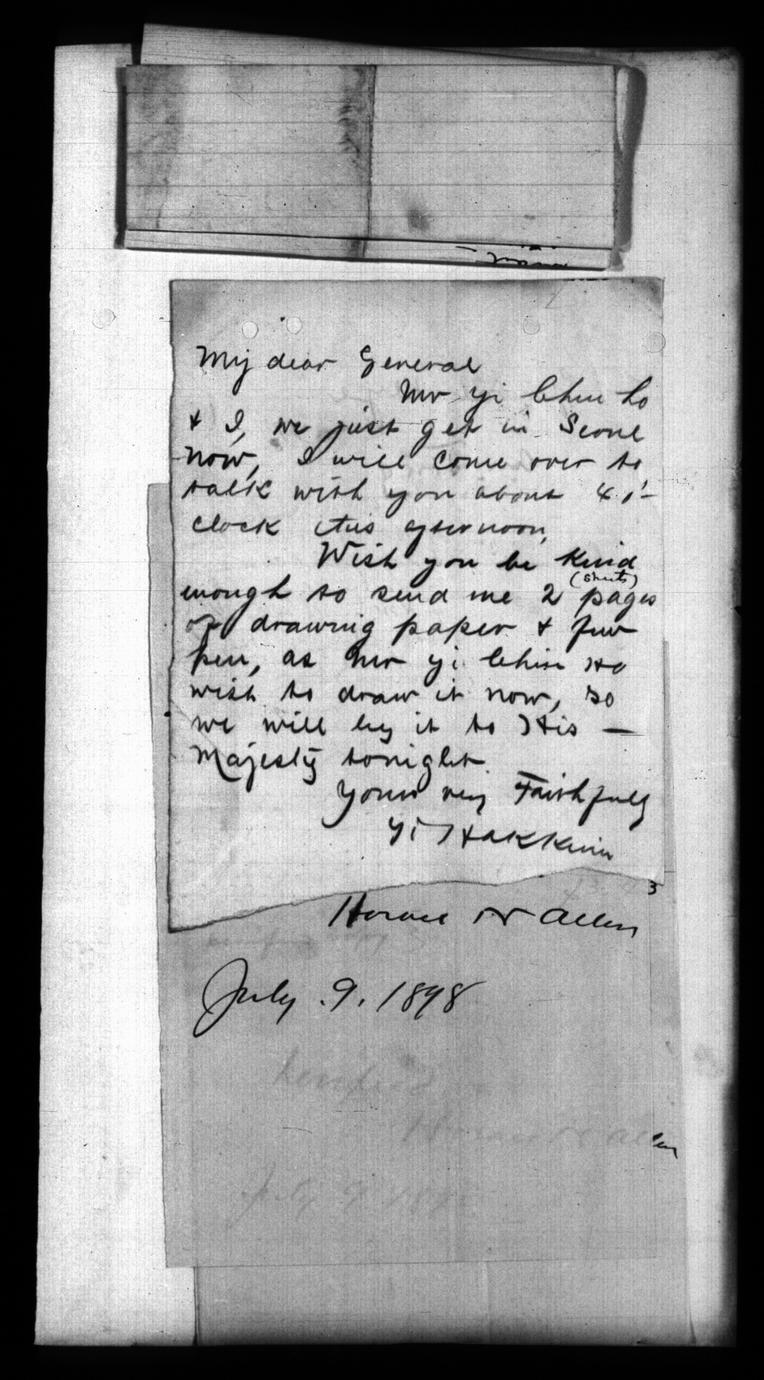 My dear General
Mr Yi Chin ho
& I, we just get in Seoul
now, I will come over to
talk with you about 4 o'-
clock this afternoon,
Wish you be kind
(sheets)
enough to send me 2 pages
of drawing paper & few
pen, as Mr Yi Chin Ho
wish to draw it now, so
we will by it to His —
Majesty tonight
Yours very Faithfully
Yi Hak Kiun
3
Horace N Allen
July .9. 1898
Horace N Allen
July 9 189